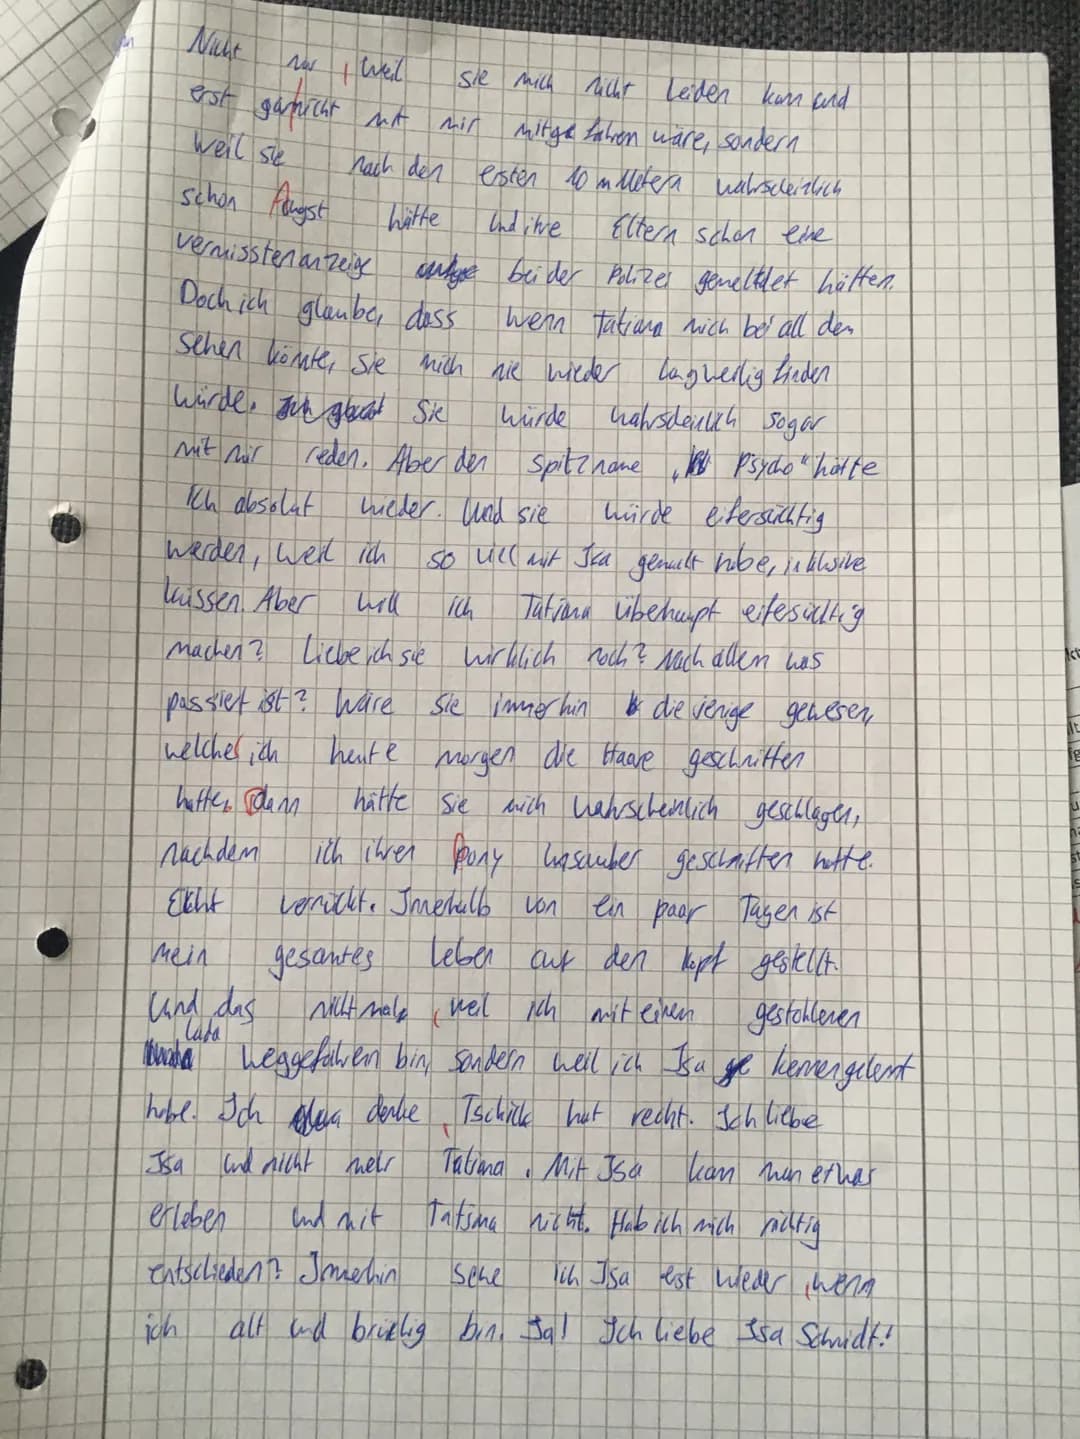 Nicht nur, weil sie mich nicht leiden kann und
erst garnicht mit mir mitgefahren wäre, sondern
weil sie nach den ersten 10 metern wahrscheinlich
schon Angst hätte und ihre Eltern schon eine
vermisstenanzeige bei der Polizei gemeldet hätten.
Doch ich glaube, dass wenn Tatjana mich bei all dem
sehen könnte, sie mich nie wieder langweilig finden
würde. Sie würde wahrscheinlich sogar
mit mir reden. Aber den Spitzname „Psycho“ hätte
ich absolut wieder. Und sie würde eifersüchtig
werden, weil ich so viel mit Isa gemacht habe, inklusive
küssen. Aber will ich Tatjana überhaupt eifersüchtig
machen? Liebe ich sie wirklich noch? Nach allem was
passiert ist? Wäre sie immerhin die jenige gewesen,
welche ich heute morgen die Haare geschnitten
hatte, dann hätte sie mich wahrscheinlich geschlagen,
nachdem ich ihren Pony unsauber geschnitten hatte.
Echt verrückt. Innerhalb von ein paar Tagen ist
mein gesamtes Leben auf den kopf gestellt.
Und das nicht mal, weil ich mit einem gestohlenen
Lada weggefahren bin, sondern weil ich Isa kennengelernt
habe. Ich denke, Tschick hat recht. Ich liebe
Isa und nicht mehr Tatjana. Mit Isa kann man etwas
erleben und mit Tatjana nicht. Hab ich mich richtig
entschieden? Immerhin sehe ich Isa erst wieder, wenn
ich alt und brüchig bin. Ja! Ich liebe Isa Schmidt!